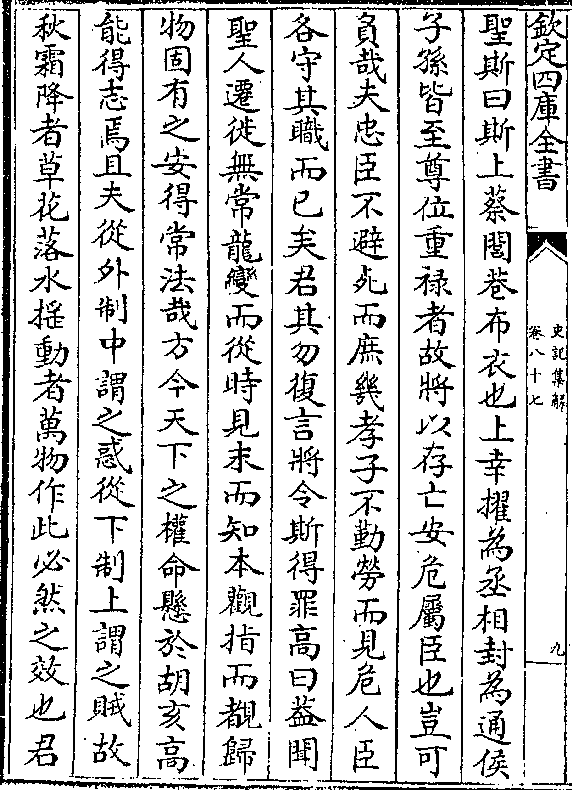 欽定四庫全書
史記集解
卷八十七
九
聖斯曰斯上蔡閭巷布衣也上幸擢為丞相封為通侯
子孫皆至尊位重禄者故將以存亡安危屬臣也豈可
負哉夫忠臣不避死而庶幾孝子不勤勞而見危人臣
各守其職而已矣君其勿復言將令斯得罪高曰葢聞
聖人遷徙無常龍變而從時見末而知本觀指而覩歸
物固有之安得常法哉方今天下之權命懸於胡亥高
能得志焉且夫從外制中謂之惑從下制上謂之賊故
秋霜降者草花落水揺動者萬物作此必然之效也君